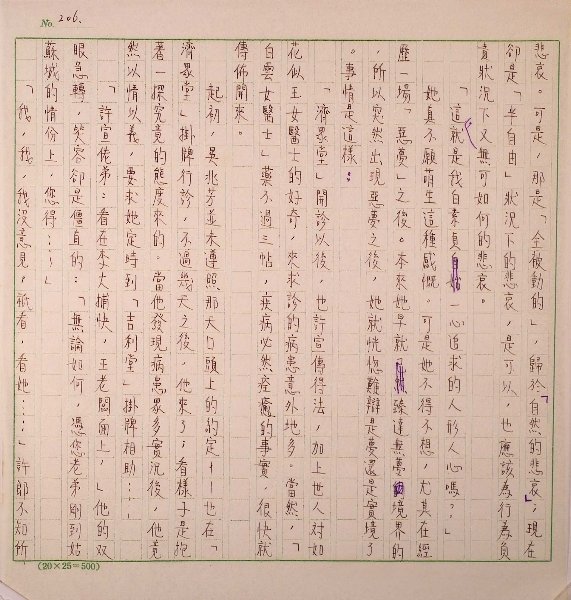 No. 206.
悲哀。可是，那是「全被動的」，歸於「自然的悲哀」；現在
卻是「半自由」狀況下的悲哀，是可以，也應該為行為負
責狀況下又無可如何的悲哀。
「這就是我白素貞一心追求的人形人心嗎？」
她真不願萌生這種感慨。可是她不得不想，尤其在經
歷一場「惡夢」之後。本來她早就臻達無夢境界的
，所以突然出現惡夢之後，她就恍惚難辯是夢還是實境了
。事情是這樣：
「濟眾堂」開診以後，也許宣傳得法，加上世人對如
花似玉女醫士的好奇，來求診的病患意外地多。當然，「
白雲女醫士」藥不過三帖，疾病必然痊癒的事實，很快就
傳佈開來。
起初，吳兆芳並未遵照那天口頭上的約定——也在「
濟眾堂」掛牌行診，不過幾天之後，他來了；看樣子是抱
著一探究竟的態度來的。當他發現病患眾多實況後，他竟
然以情以義，要求她定時到「吉利堂」掛牌相助……
「許宣佬弟：看在李大捕快，王老闆面上，」他的双
眼急轉，笑容卻是僵直的：「無論如何，憑您老弟剛到姑
蘇城的情份上，您得……」
「我，我，我沒意見，祇看，看她……」許郎不知所
(20×25=500)